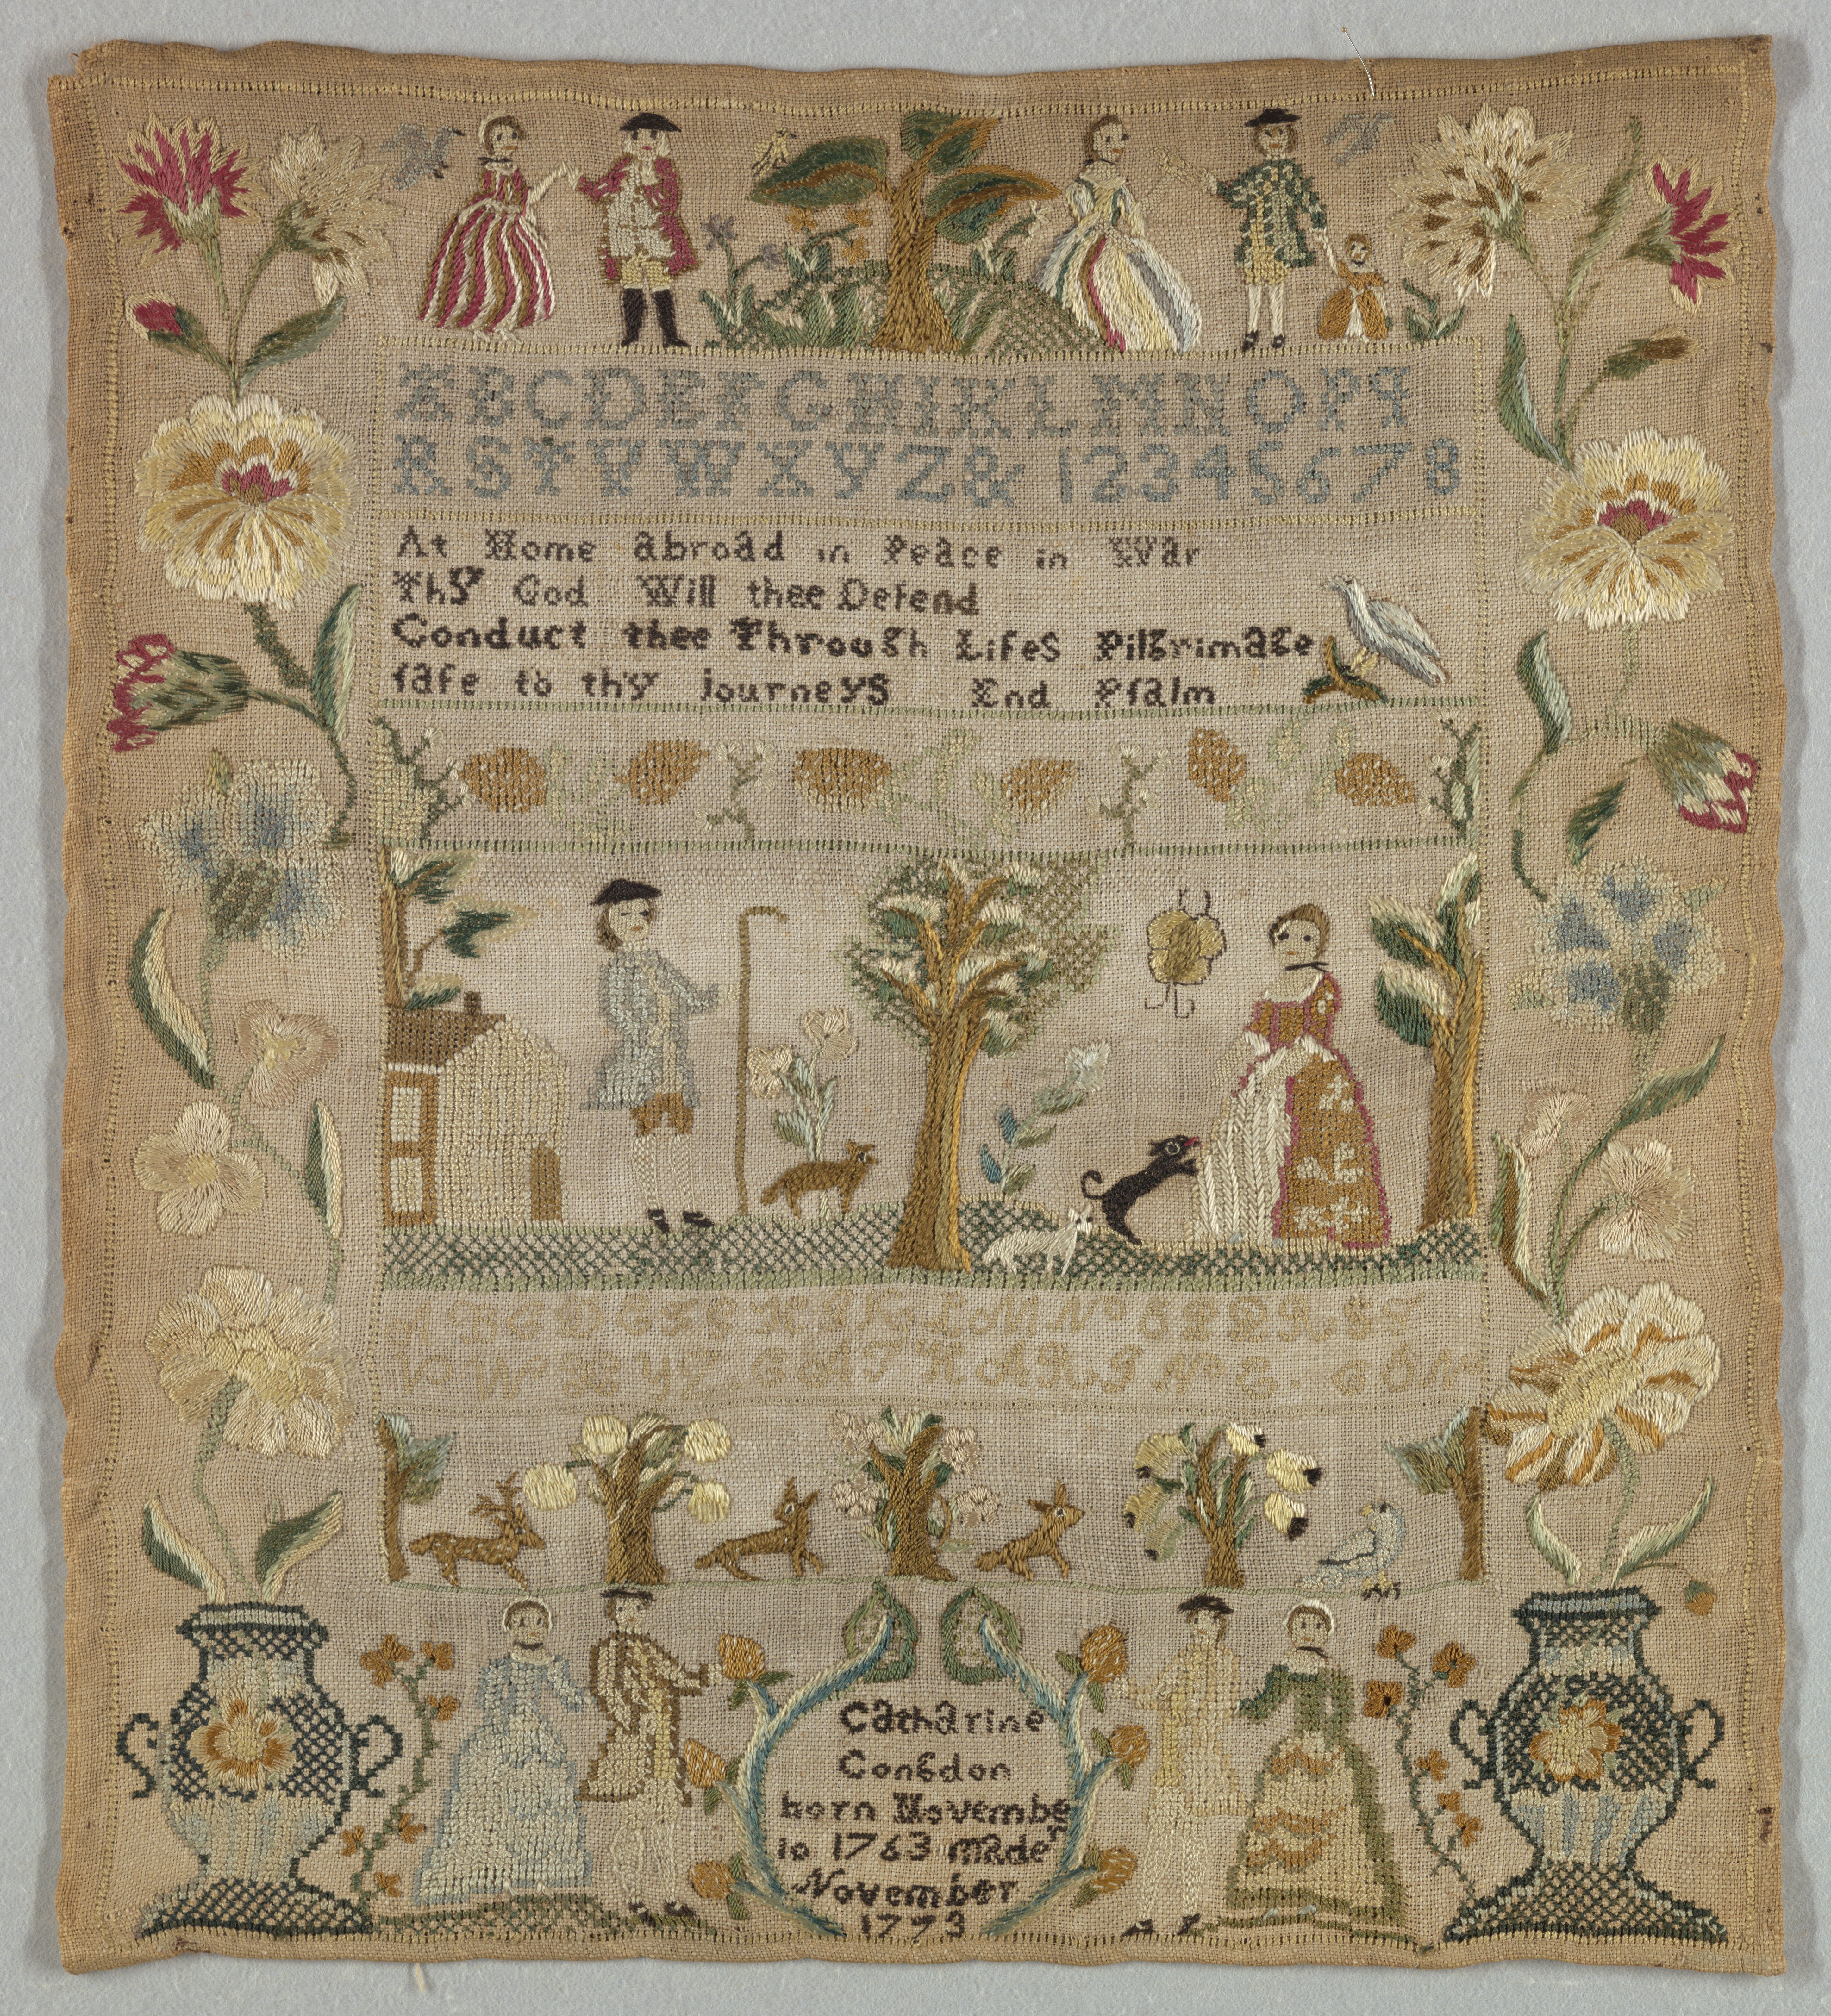 ABCDEFGHIKLMNOPq
RSTVWXYZ& 12345678
At Home abroad in Peace in War
Thy God Will thee Defend
Conduct thee Through Lifes Pilgrimage
ſafe to thy journeys End Pſalm
ABCDEFGHIKLMNOPQRST
VWXYZ CATHARINE CON
Catharine
Congdon
born November
10 1763 made
November
1773